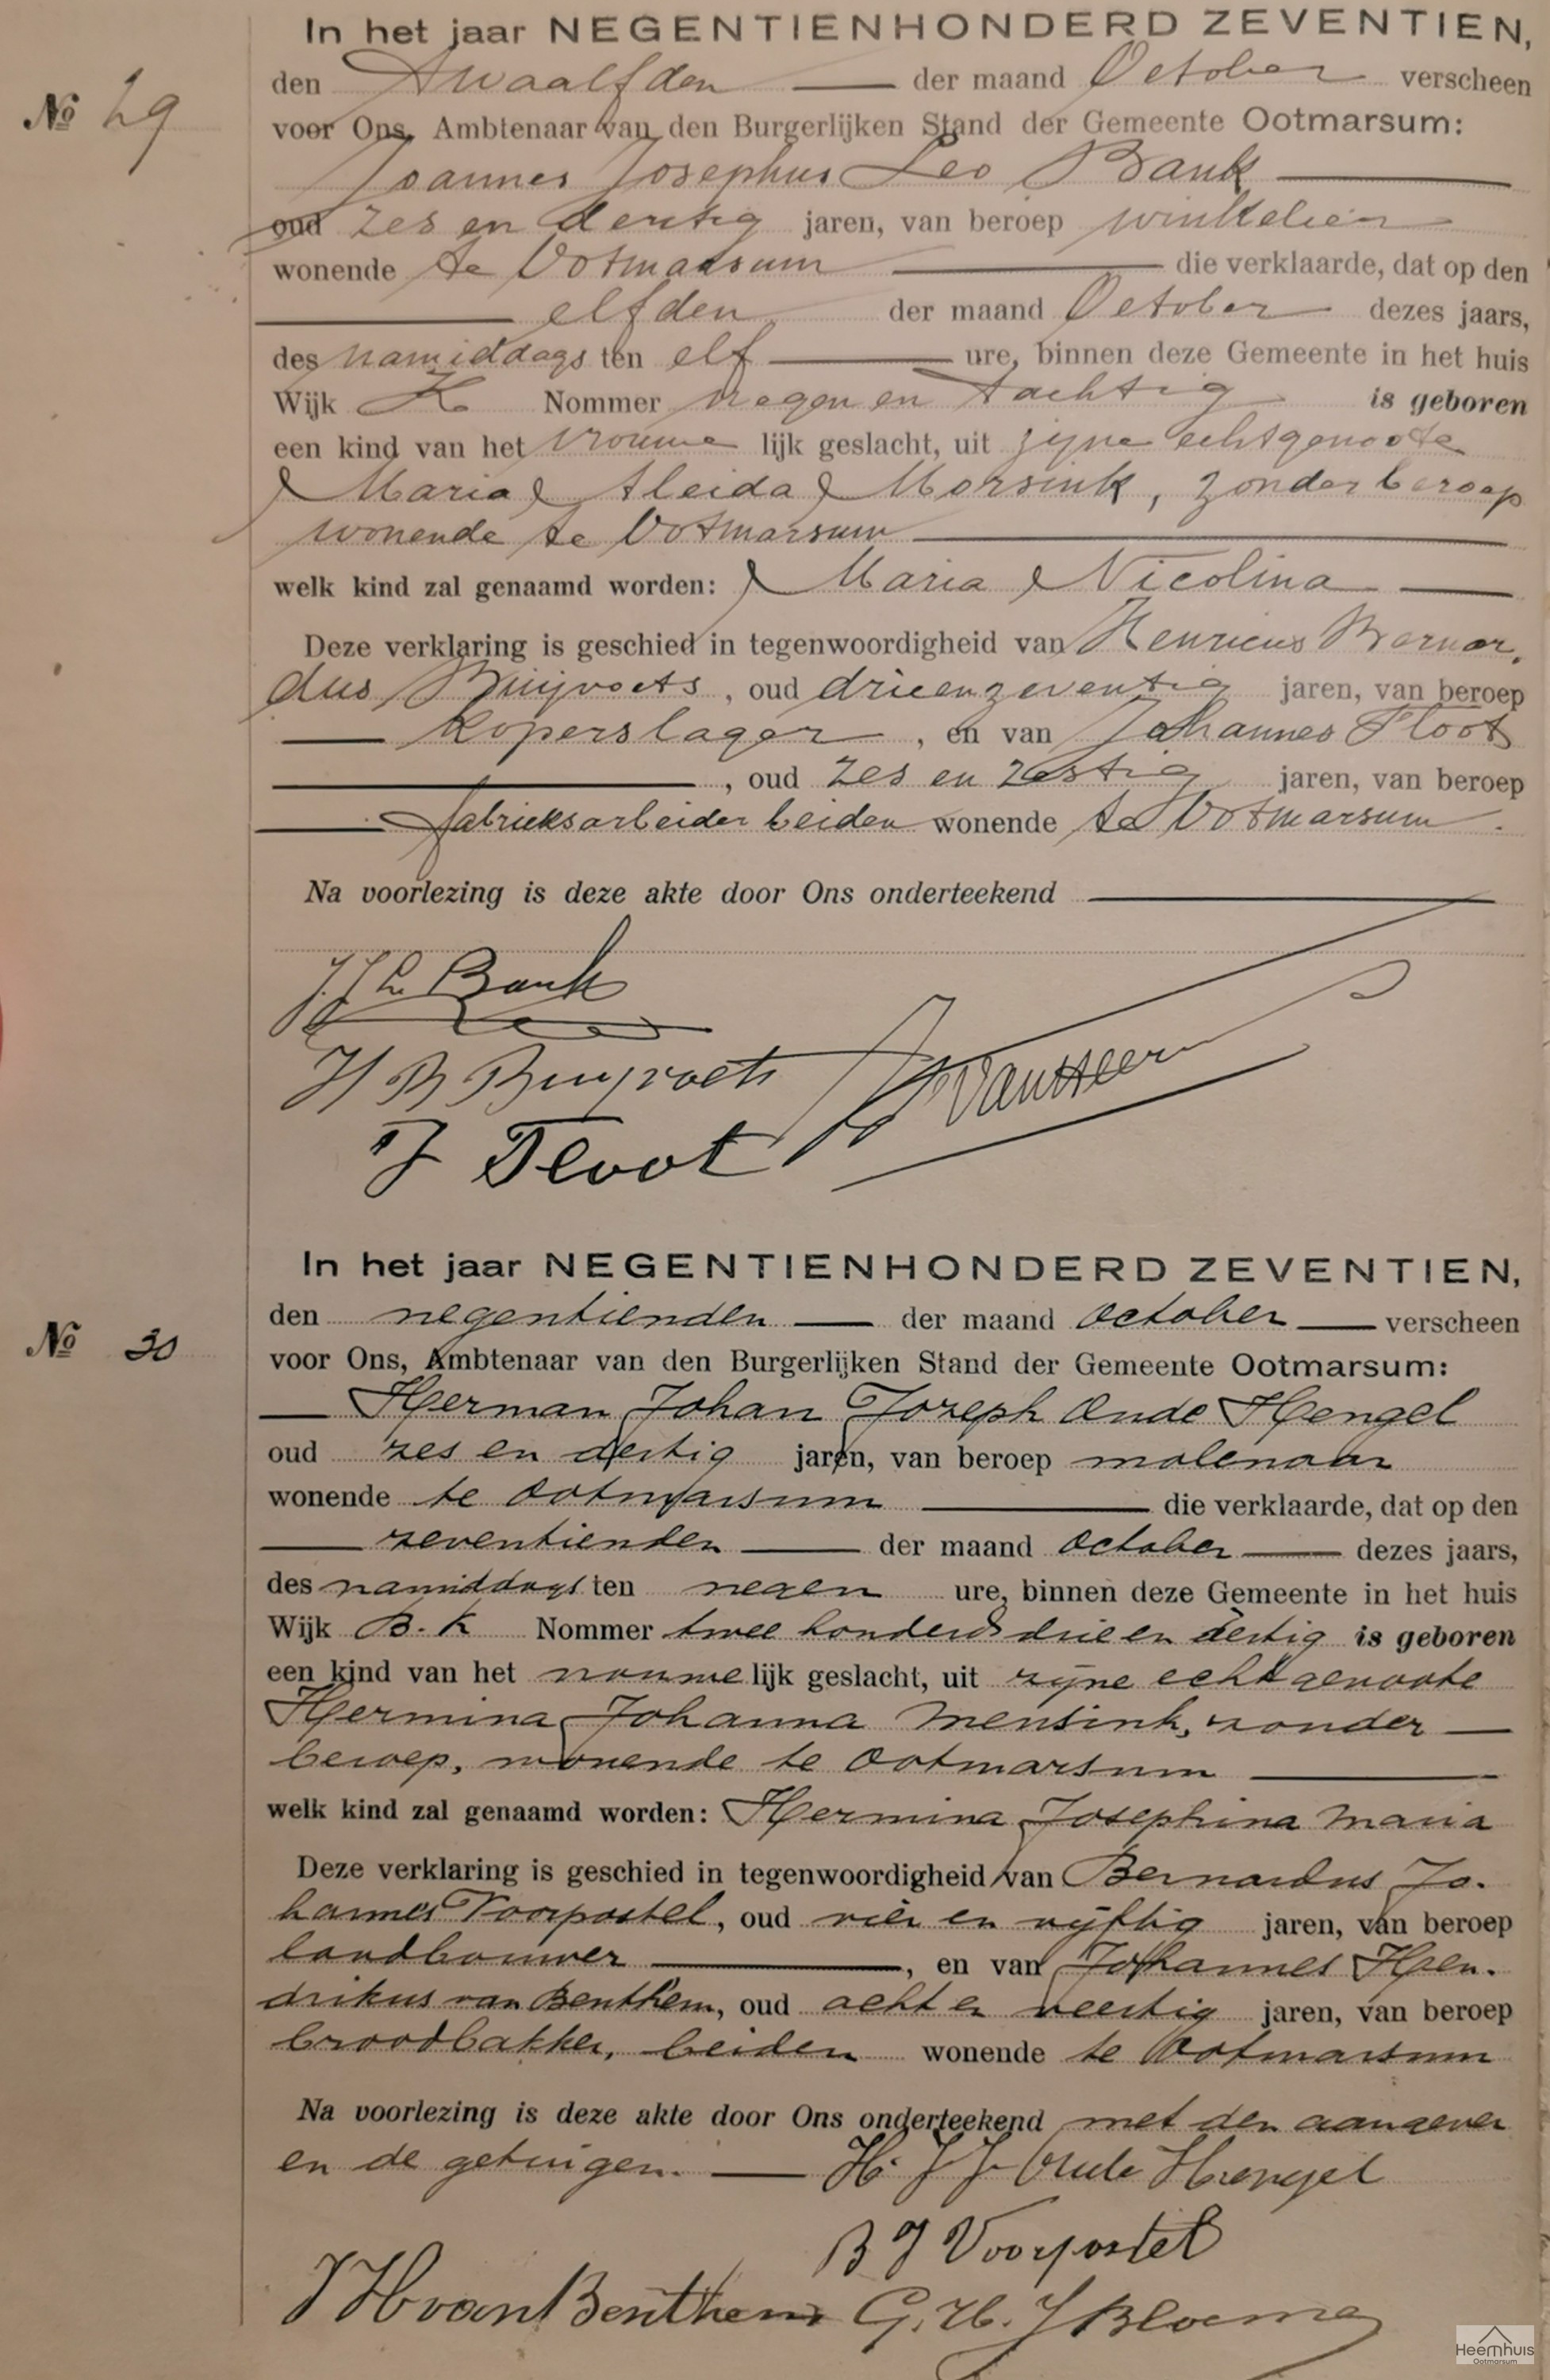 In het jaar NEGENTIENHONDERD ZEVENTIEN,
No 29
den Twaalfden der maand October verscheen
voor Ons, Ambtenaar van den Burgerlijken Stand der Gemeente Ootmarsum:
Joannes Josephus Leo Bank
oud zes en dertig jaren, van beroep winkelier
wonende te Ootmarsum die verklaarde, dat op den
elfden der maand October dezes jaars,
des namiddags ten elf ure, binnen deze Gemeente in het huis
Wijk K Nommer negen en tachtig is geboren
een kind van het vrouwe lijk geslacht, uit zijne echtgenoote
Maria Aleida Morsink, zonder beroep
wonende te Ootmarsum
welk kind zal genaamd worden: Maria Nicolina
Deze verklaring is geschied in tegenwoordigheid van Henricus Bernar,
dus Buijvoets, oud drieenzeventig jaren, van beroep
koperslager, en van Johannes Floot
, oud zes en zestig jaren, van beroep
fabrieksarbeider beiden wonende te Ootmarsum.
Na voorlezing is deze akte door Ons onderteekend
J. J. L. Bank
H B Buijvoets
J Floot
In het jaar NEGENTIENHONDERD ZEVENTIEN,
No 30
den negentienden der maand October verscheen
voor Ons, Ambtenaar van den Burgerlijken Stand der Gemeente Ootmarsum:
Herman Johan Joseph Oude Hengel
oud zes en dertig jaren, van beroep molenaar
wonende te Ootmarsum die verklaarde, dat op den
zeventienden der maand October dezes jaars,
des namiddags ten negen ure, binnen deze Gemeente in het huis
Wijk B. K Nommer twee honderd drie en dertig is geboren
een kind van het vrouwe lijk geslacht, uit zijne echtgenoote
Hermina Johanna Mensink, zonder
beroep, wonende te Ootmarsum
welk kind zal genaamd worden: Hermina Josephina Maria
Deze verklaring is geschied in tegenwoordigheid van Bernardus Jo-
hannes Voorpostel, oud vier en vijftig jaren, van beroep
landbouwer, en van Johannes Hen-
drikus van Benthem, oud acht en veertig jaren, van beroep
broodbakker, beiden wonende te Ootmarsum
Na voorlezing is deze akte door Ons onderteekend met den aangever
en de getuigen. H. J. J. Oude Hengel
B J Voorpostel
J H van Benthem G. H. J Bloemen
Heemhuis
Ootmarsum